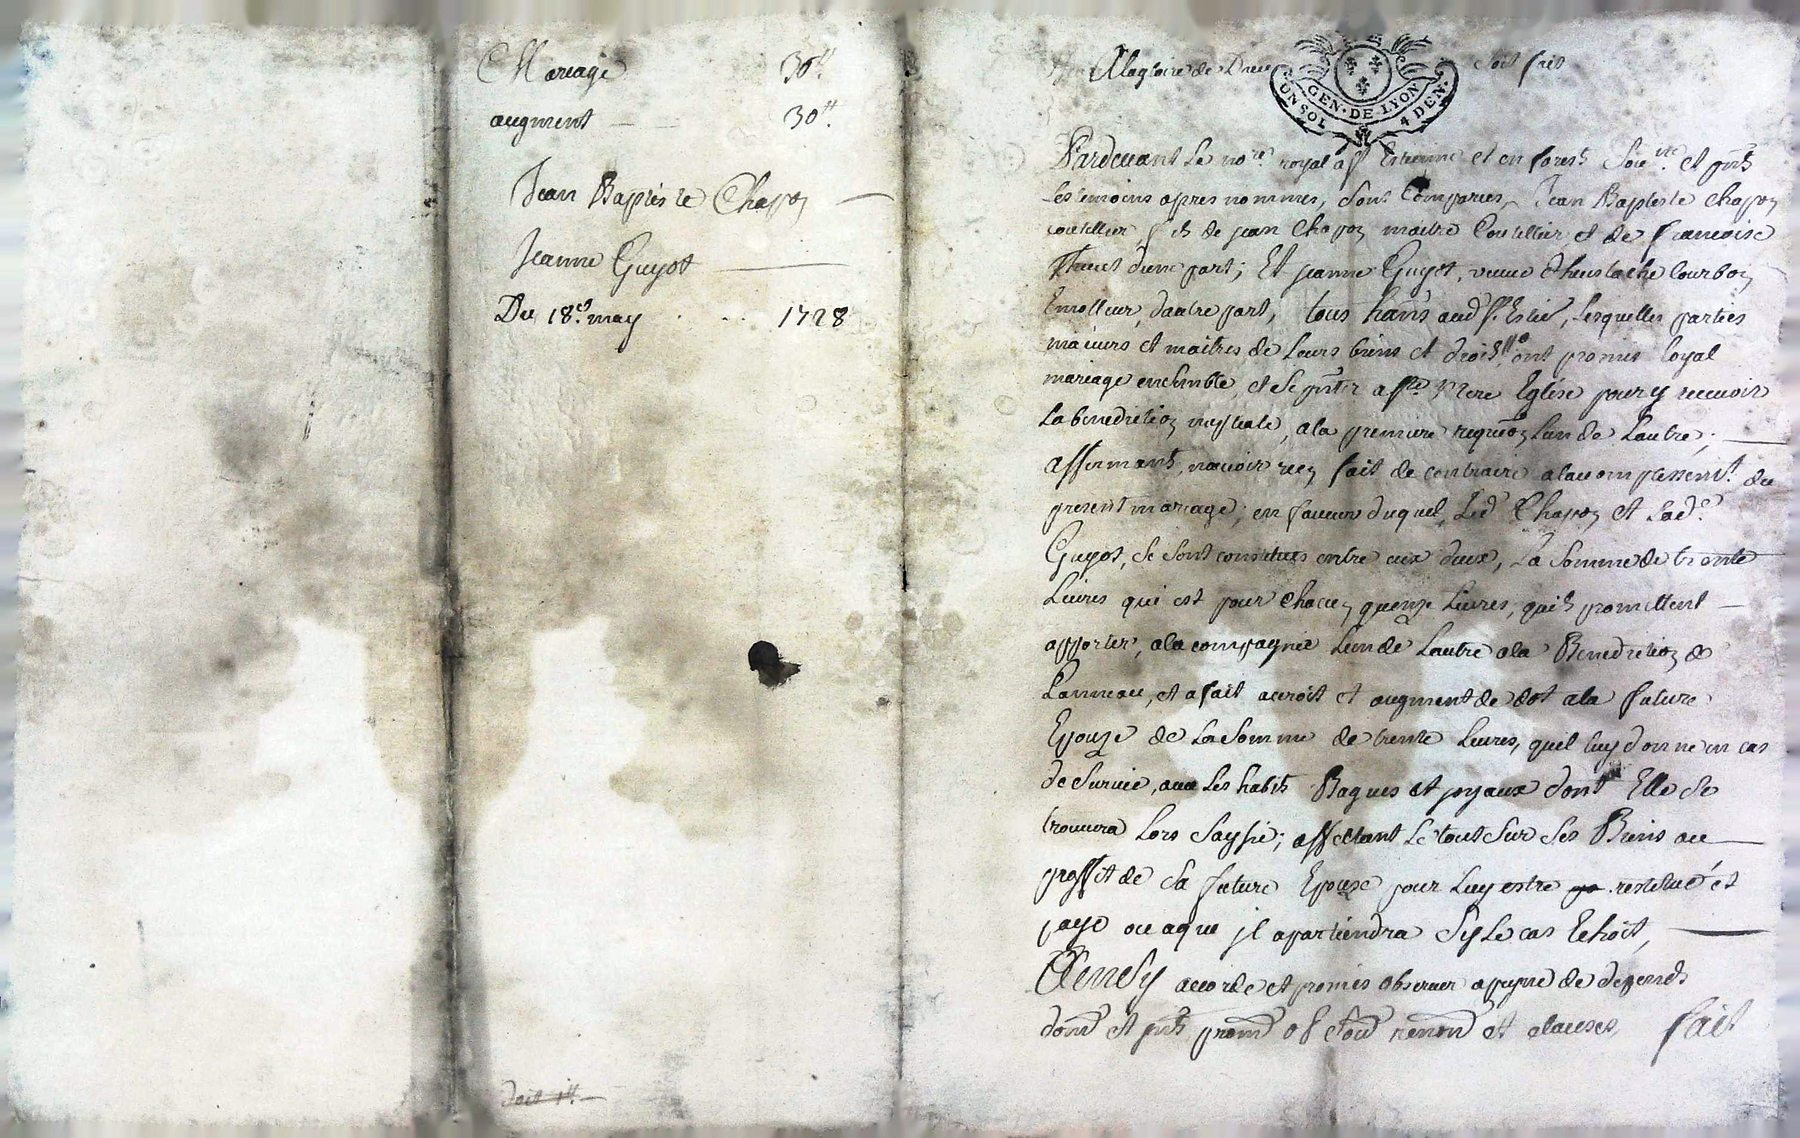 Mariage 30ᵗᵗ
augment 30ᵗᵗ
Jean Baptiste Chapon
Jeanne Guyot
Du 18ᵉ. may 1728
doit 1ᵗᵗ
Alagloire de Dieu soit fait
GEN · DE · LYON
UN SOL 4 DEN.
Pardevant Le noʳᵉ royal a sᵗ Estienne et en forest et pnts
Les temoins apres nommes, sont comparus, Jean Baptiste Chapon
coutellier fils de jean Chapon maitre Coutellier et de francoise
dune part; Et jeanne Guyot, veuve d'heustache Courbon
Emolleur, dautre part, tous hants aud Sᵗ Estieᵉ, Lesquelles parties
majeurs et maitres de Leurs biens et droits, ont promis loyal
mariage ensemble, et se pnter a sᵗᵉ Mere Eglise pour y recevoir
La benediction nuptiale, ala premiere requion Lun de Lautre;
affirmants, navoir rien fait de contraire alacomplissemᵗ. du
present mariage; en faveur duquel, Led Chapon et Ladᵉ.
Guyot, se sont constitues entre eux deux, La somme de trente
Livres qui est pour chacun quinze Livres, quils promettent
apporter, ala compagnie Lun de Lautre ala Benediction de
Lanneau, et a fait acroit et augment de dot ala future
Epouze de La Somme de trente Livres, quil luy donne en cas
de survie, avec Les habits Bagues et joyaux dont Elle se
trouvera Lors Saysie; affectant Le tout sur ses Biens au
proffit de sa future Epouse pour Luy estre restitué et
payé ou a qui jl apartiendra Sy Le cas Echoit,
Ainsy accordé et promis observer a peyne de depends
dom et jnts prom obl soum renon et clauses, fait